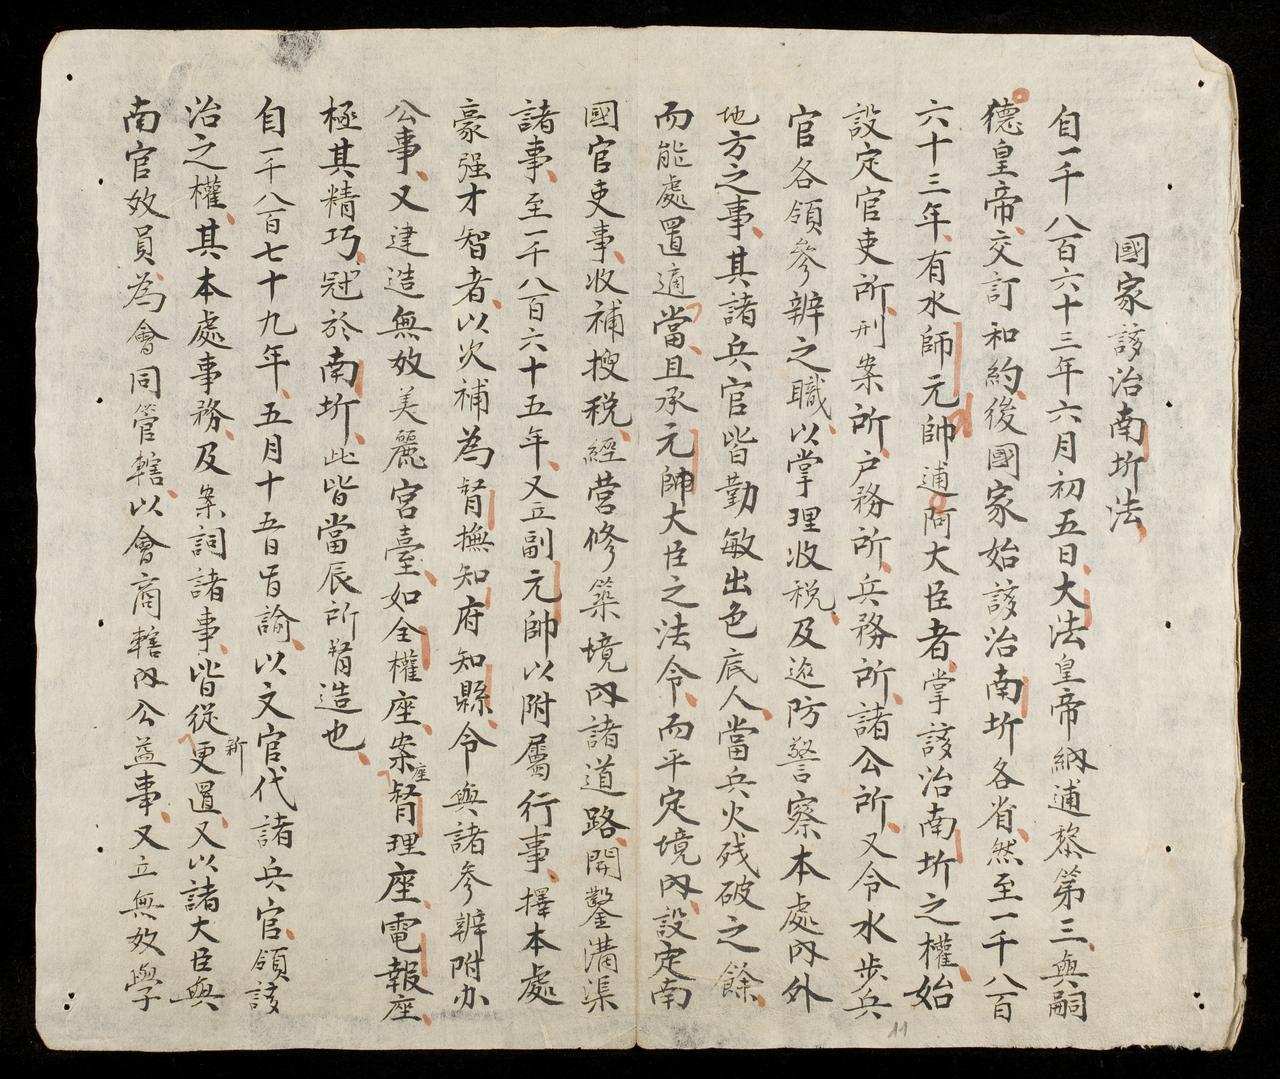 國家該治南圻法
自一千八百六十三年六月初五日大法皇帝納逋黎第三與嗣
德皇帝交訂和約後國家始該治南圻各省然至一千八百
六十三年有水師元帥逋阿大臣者掌該治南圻之權始
設定官吏所刑案所户務所兵務所諸公所又令水步兵
官各領參辨之職以掌理收税及巡防警察本處內外
地方之事其諸兵官皆勤敏出色底人當兵火残破之餘
而能處置適當且承元帥大臣之法令而平定境內設定南
國官吏事收補搜税經营修築境內諸道路開鑿溝渠
諸事至一千八百六十五年又立副元帥以附屬行事擇本處
豪强才智者以次補為督撫知府知縣令與諸參辨附办
公事又建造無效美麗宮臺如全權座案座督理座電報座
極其精巧冠於南圻此皆當辰所督造也
自一千八百七十九年五月十五日旨諭以文官代諸兵官領該
治之權其本處事務及案詞諸事皆從新更置又以諸大臣與
南官效員為會同管轄以會商轄內公益事又立無效學
11